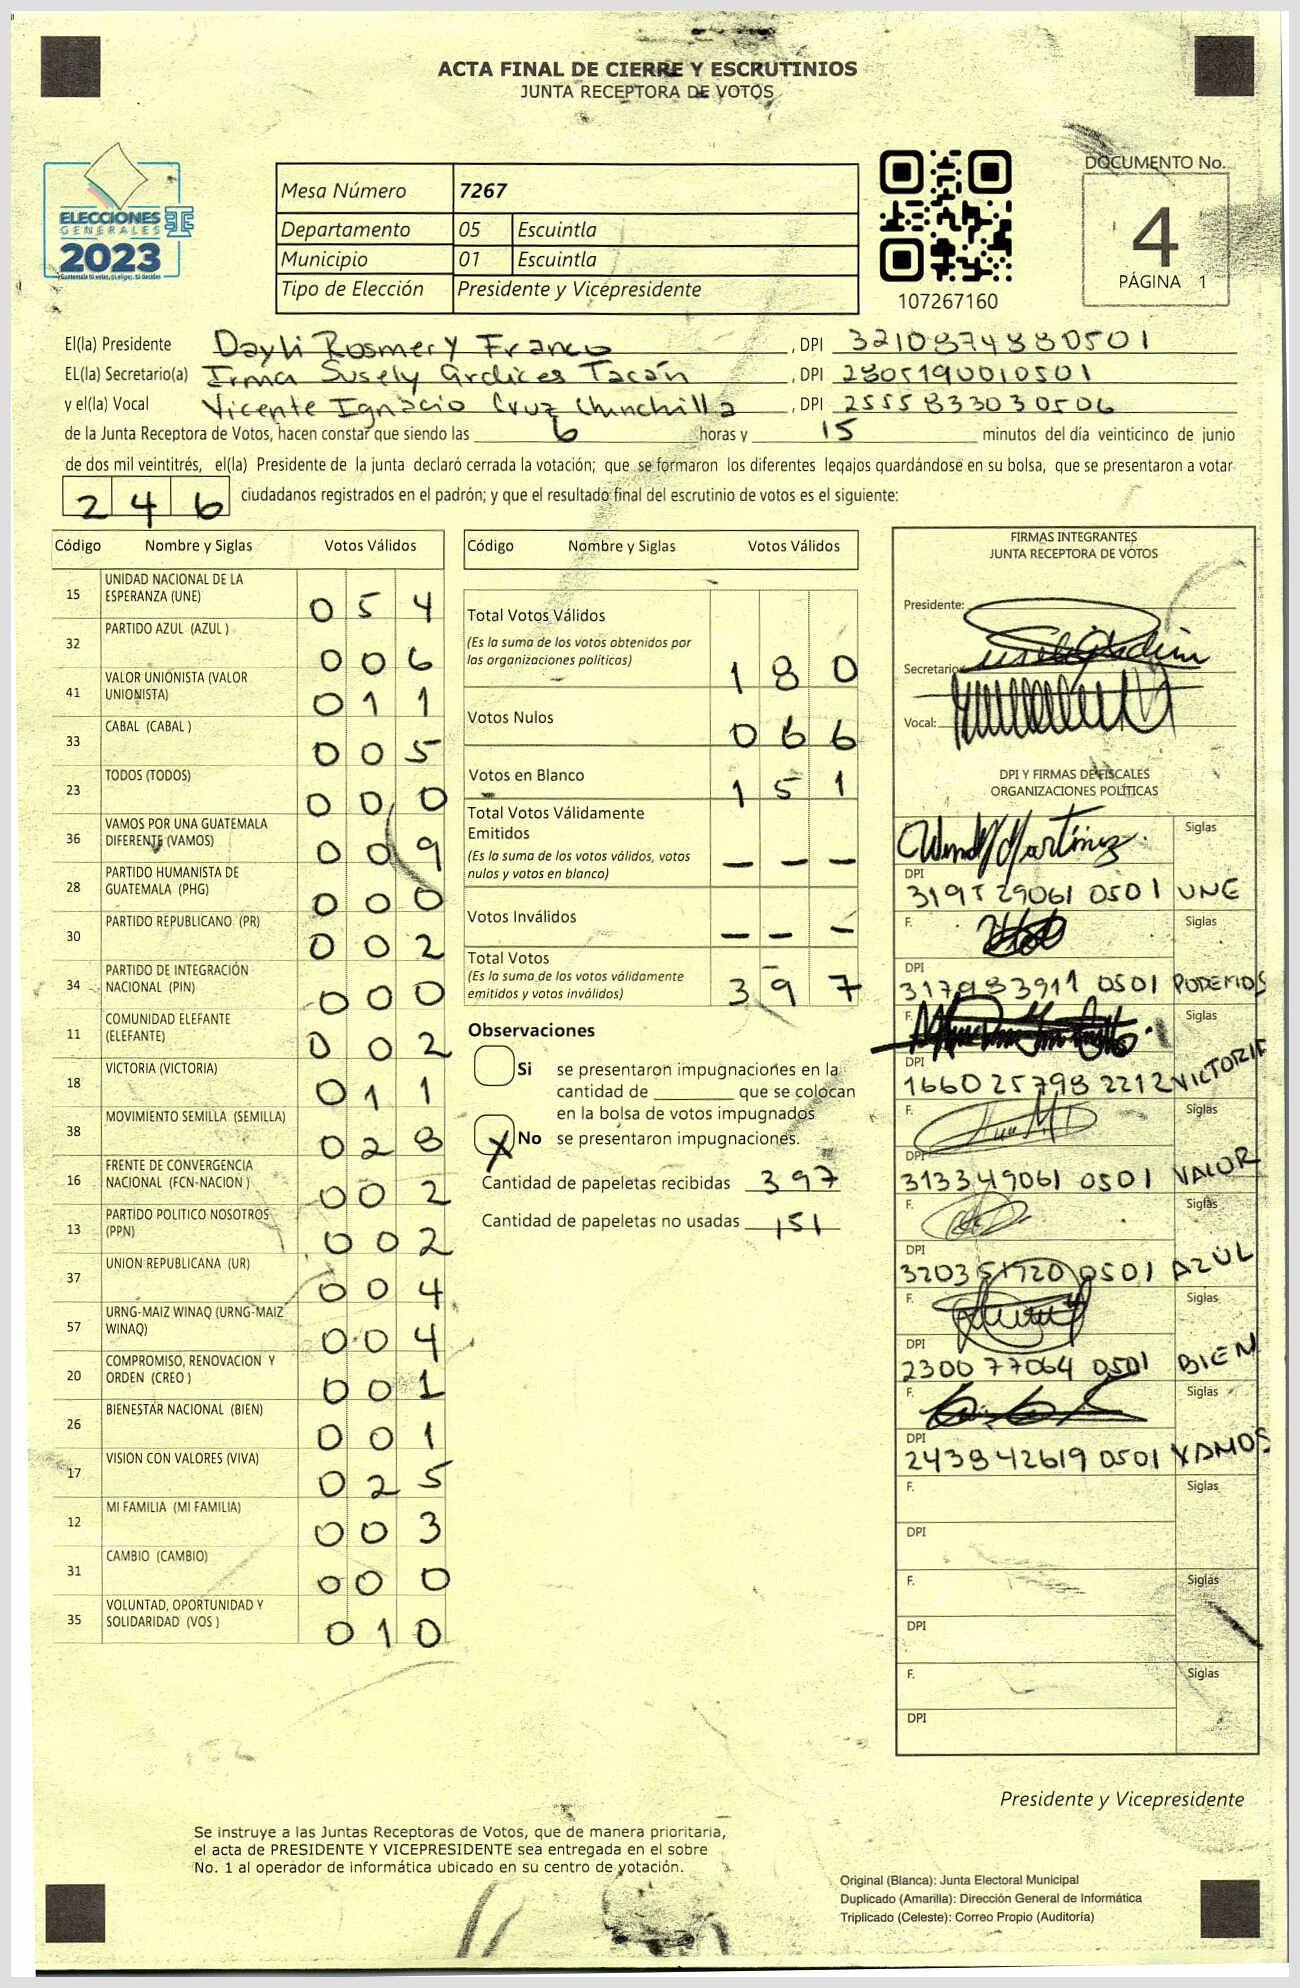 ACTA FINAL DE CIERRE Y ESCRUTINIOS
JUNTA RECEPTORA DE VOTOS
DOCUMENTO No.
4
PÁGINA 1
ELECCIONES
GENERALES
2023
Mesa Número 7267
Departamento 05 Escuintla
Municipio 01 Escuintla
Tipo de Elección Presidente y Vicepresidente
107267160
El(la) Presidente Dayli Rosmery Franco, DPI 3210874880501
EL(la) Secretario(a) Irma Susely Ardices Tacán, DPI 2305190010501
y el(la) Vocal Vicente Ignacio Cruz Chinchilla, DPI 2555833030506
de la Junta Receptora de Votos, hacen constar que siendo las 6 horas y 15 minutos del día veinticinco de junio
de dos mil veintitrés, el(la) Presidente de la junta declaró cerrada la votación; que se formaron los diferentes legajos guardándose en su bolsa, que se presentaron a votar
246 ciudadanos registrados en el padrón; y que el resultado final del escrutinio de votos es el siguiente:
Código Nombre y Siglas Votos Válidos
15 UNIDAD NACIONAL DE LA ESPERANZA (UNE) 054
32 PARTIDO AZUL (AZUL ) 006
41 VALOR UNIONISTA (VALOR UNIONISTA) 011
33 CABAL (CABAL ) 005
23 TODOS (TODOS) 000
36 VAMOS POR UNA GUATEMALA DIFERENTE (VAMOS) 009
28 PARTIDO HUMANISTA DE GUATEMALA (PHG) 000
30 PARTIDO REPUBLICANO (PR) 002
34 PARTIDO DE INTEGRACIÓN NACIONAL (PIN) 000
11 COMUNIDAD ELEFANTE (ELEFANTE) 002
18 VICTORIA (VICTORIA) 011
38 MOVIMIENTO SEMILLA (SEMILLA) 028
16 FRENTE DE CONVERGENCIA NACIONAL (FCN-NACION ) 002
13 PARTIDO POLITICO NOSOTROS (PPN) 002
37 UNION REPUBLICANA (UR) 004
57 URNG-MAIZ WINAQ (URNG-MAIZ WINAQ) 004
20 COMPROMISO, RENOVACION Y ORDEN (CREO ) 001
26 BIENESTAR NACIONAL (BIEN) 001
17 VISION CON VALORES (VIVA) 025
12 MI FAMILIA (MI FAMILIA) 003
31 CAMBIO (CAMBIO) 000
35 VOLUNTAD, OPORTUNIDAD Y SOLIDARIDAD (VOS ) 010
Código Nombre y Siglas Votos Válidos
Total Votos Válidos
(Es la suma de los votos obtenidos por
las organizaciones políticas) 180
Votos Nulos 066
Votos en Blanco 151
Total Votos Válidamente
Emitidos
(Es la suma de los votos válidos, votos
nulos y votos en blanco) — — —
Votos Inválidos — — —
Total Votos
(Es la suma de los votos válidamente
emitidos y votos inválidos) 397
Observaciones
Si se presentaron impugnaciones en la
cantidad de ________ que se colocan
en la bolsa de votos impugnados
X No se presentaron impugnaciones.
Cantidad de papeletas recibidas 397
Cantidad de papeletas no usadas 151
FIRMAS INTEGRANTES
JUNTA RECEPTORA DE VOTOS
Presidente:
Secretario
Vocal:
DPI Y FIRMAS DE FISCALES
ORGANIZACIONES POLÍTICAS
Wendy Martínez. Siglas
DPI
3195290610501 UNE
F. Siglas
DPI
3179839110501 PODEMOS
F. Siglas
DPI
1660257982212 VICTORIA
F. Siglas
DPI
3133490610501 VALOR
F. Siglas
DPI
3203517200501 AZUL
F. Siglas
DPI
2300770640501 BIEN
F. Siglas
DPI
2438426190501 VAMOS
F. Siglas
DPI
F. Siglas
DPI
F. Siglas
DPI
Presidente y Vicepresidente
Se instruye a las Juntas Receptoras de Votos, que de manera prioritaria,
el acta de PRESIDENTE Y VICEPRESIDENTE sea entregada en el sobre
No. 1 al operador de informática ubicado en su centro de votación.
Original (Blanca): Junta Electoral Municipal
Duplicado (Amarilla): Dirección General de Informática
Triplicado (Celeste): Correo Propio (Auditoría)